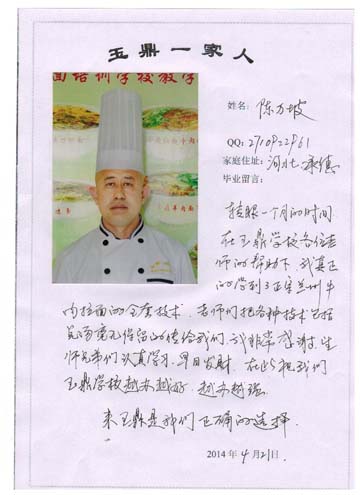 玉鼎一家人
面培训学校教学
姓名: 陈万坡
QQ: 2710922861
家庭住址: 河北 承德
毕业留言:
转眼一个月的时间
在玉鼎学校各位老
师的帮助下我真正
的学到了正宗兰州牛
肉拉面的全套技术.老师们把各种技术包括
毫无保留的传给我们.我非常感谢.
师兄弟们认真学习.早日发财.在此祝我们
玉鼎学校越办越好.越办越强.
来玉鼎是我们正确的选择.
2014年4月21日